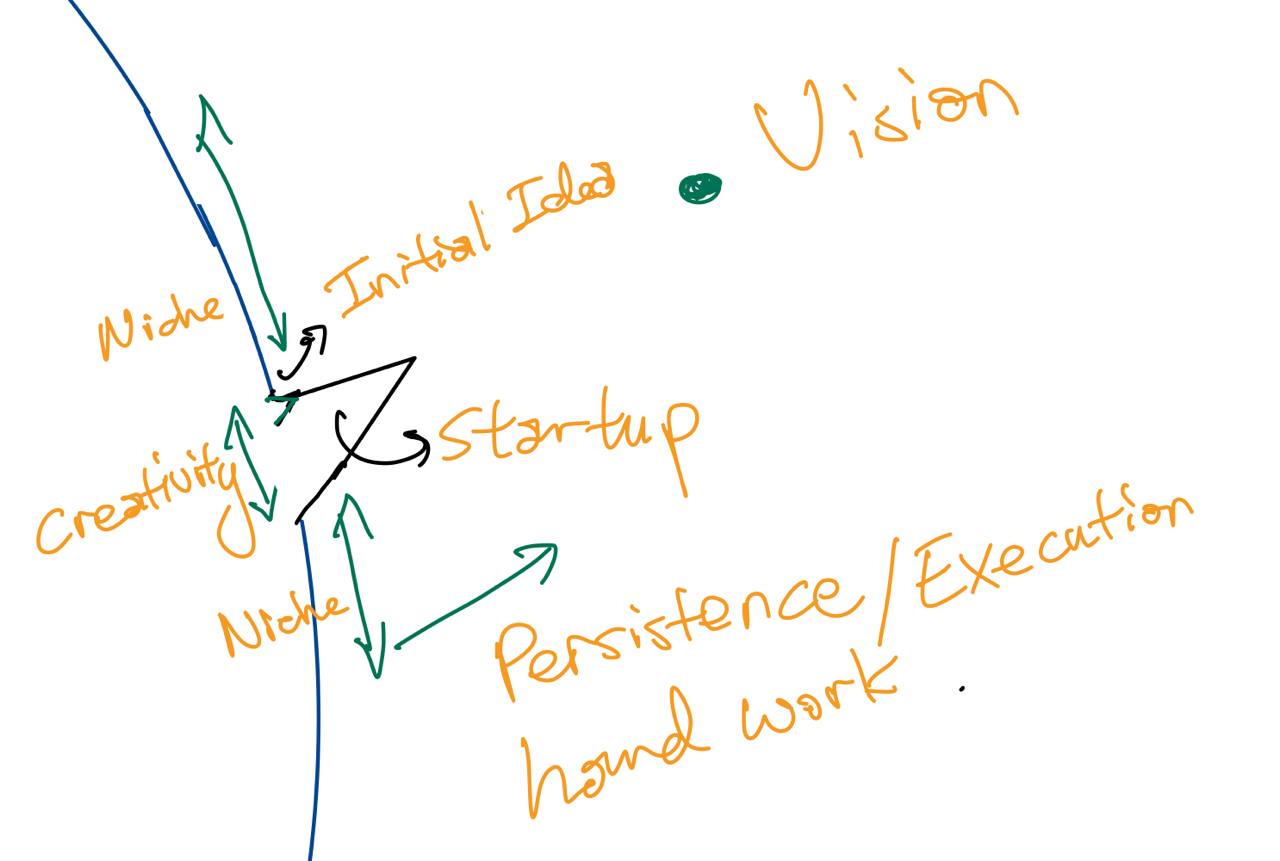 Vision
Initial Idea
Niche
Startup
Creativity
Niche
Persistence/Execution
hard work